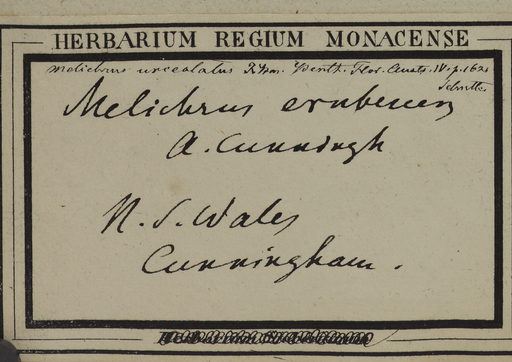 HERBARIUM REGIUM MONACENSE
Melichrus urceolatus R.Br. Benth. Flor. Austr. IV. p. 162
Melichrus erubescens
A. Cunningh
N. S. Wales
Cunningham.